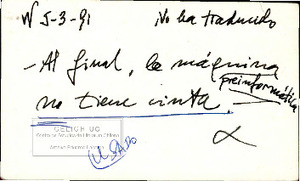 W 5-3-91 No ha traducido
- Al final, la máquina
preinformática
no tiene cinta.
CELICH UC
USADO